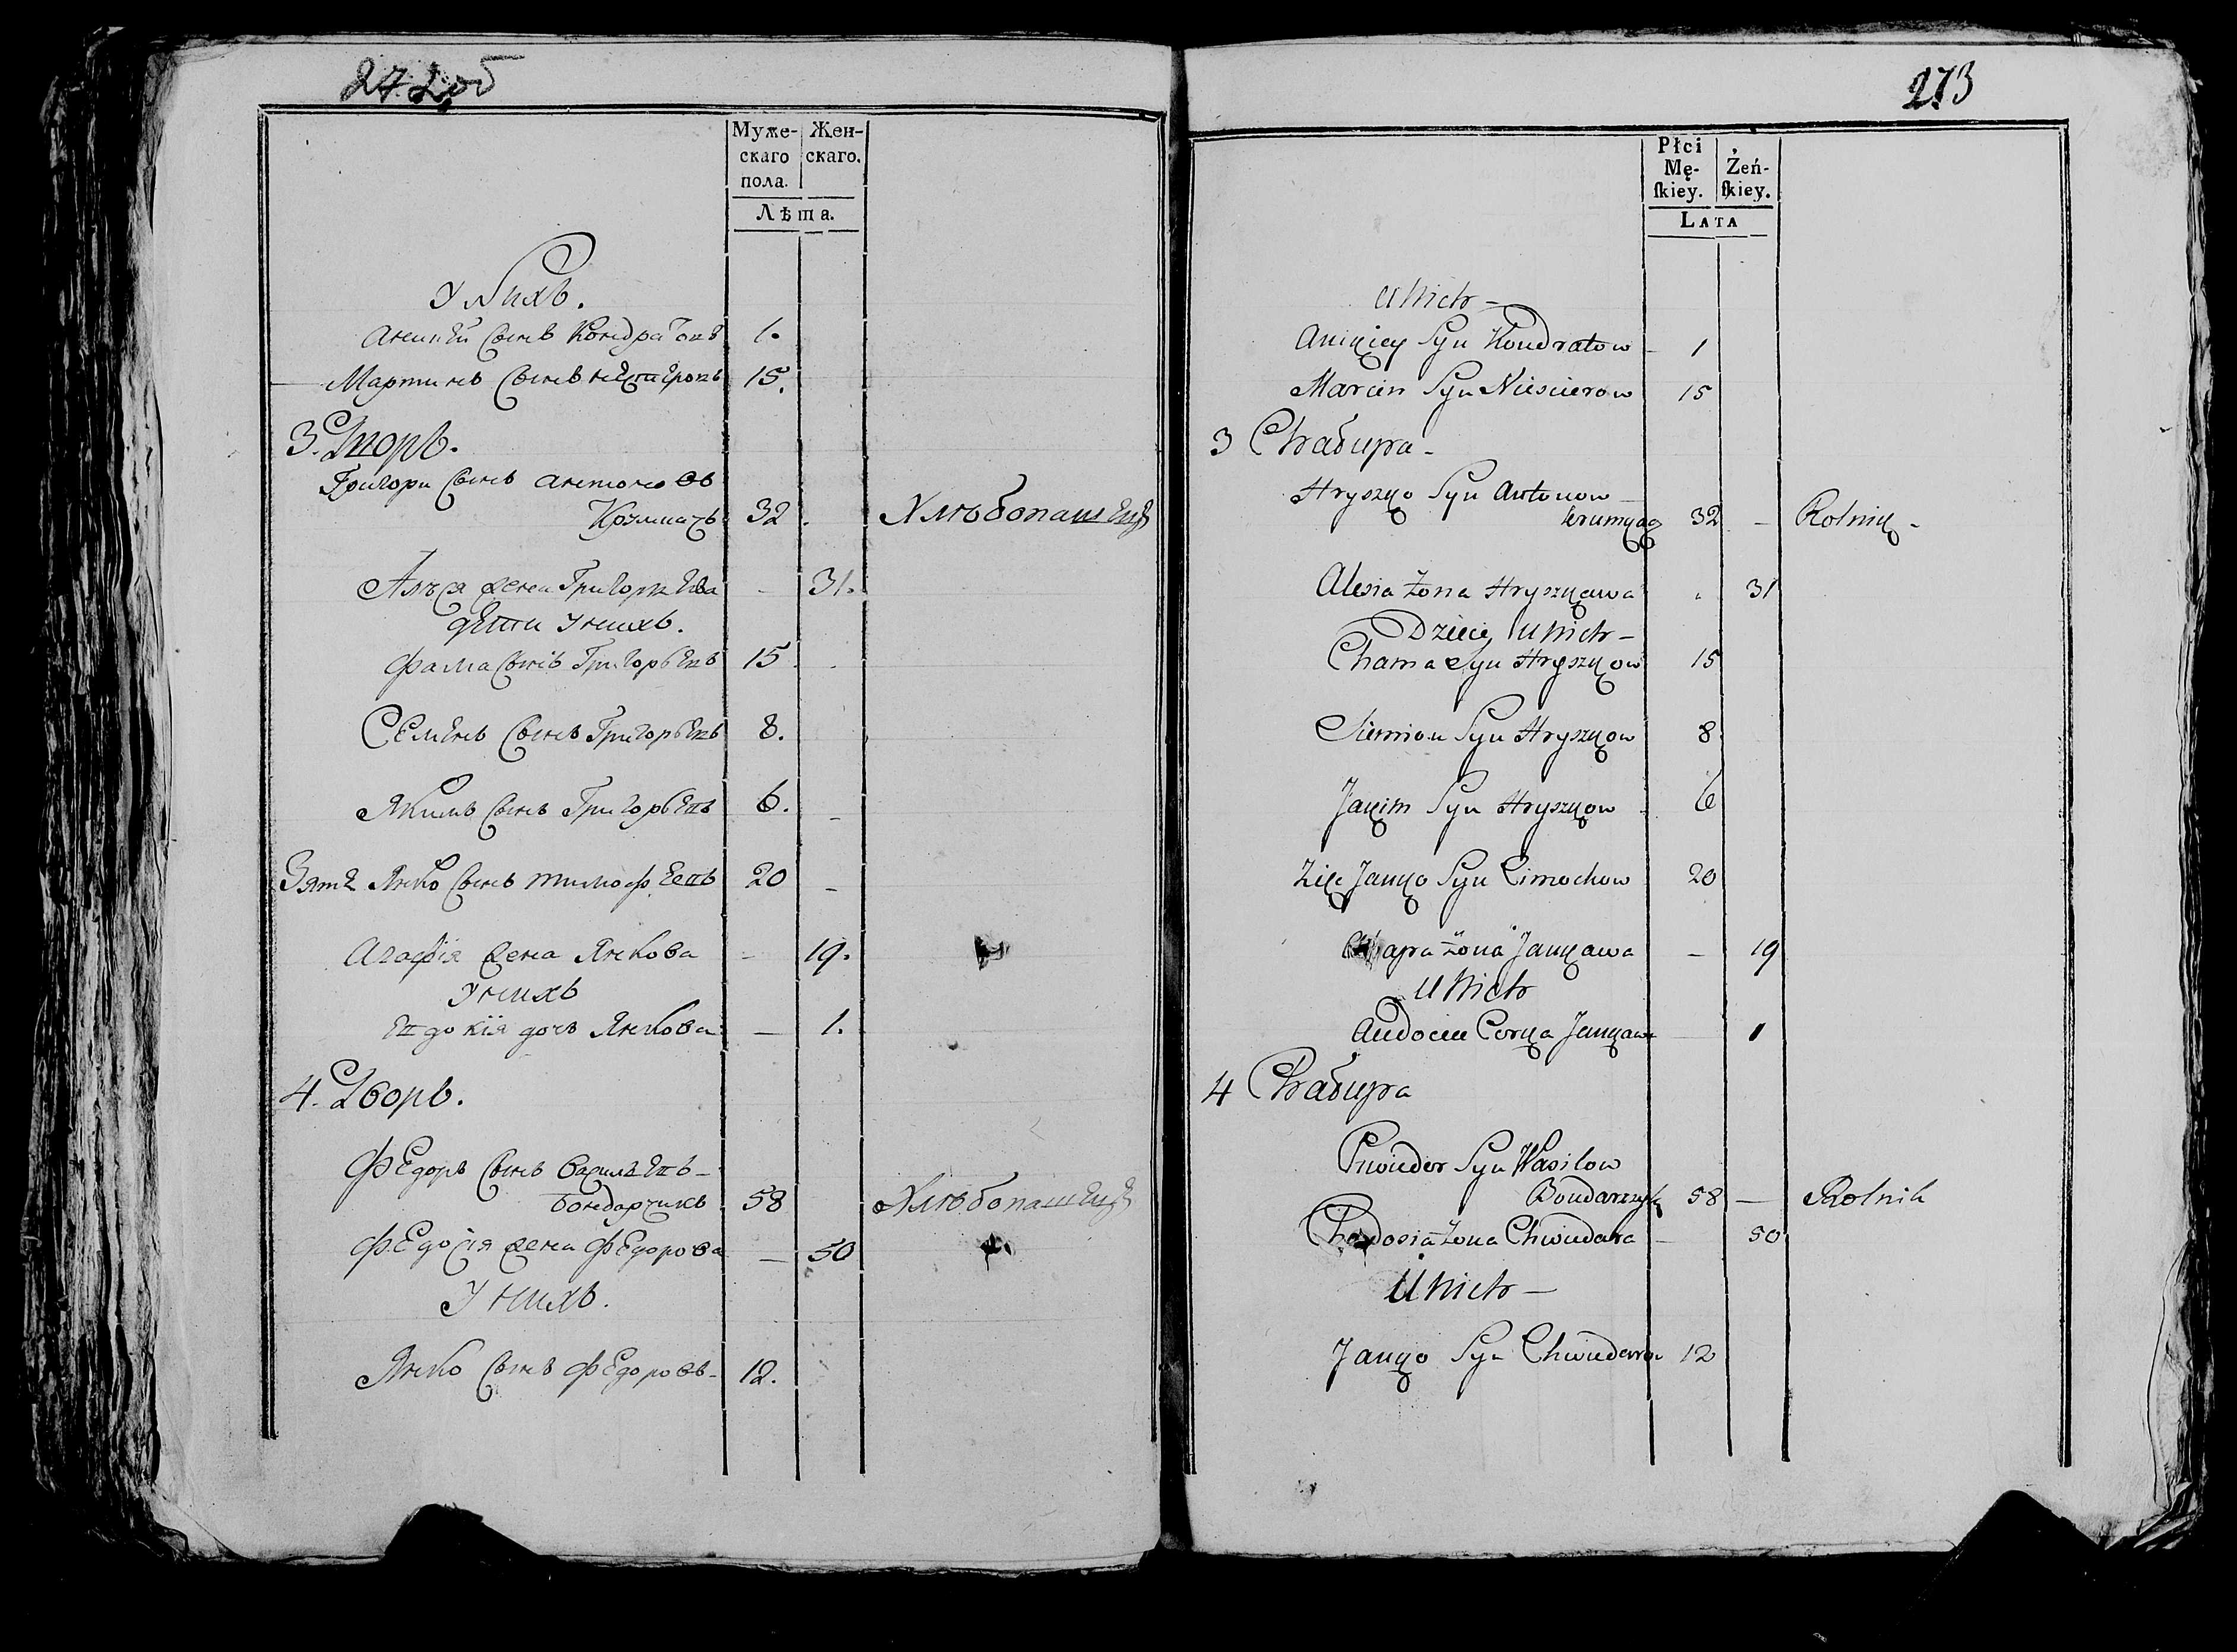 272 об
Муже-
скаго
пола.
Жен-
скаго.
Лѣта.
У нихъ.
Аникей сынъ Кондратовъ 1.
Мартинъ сынъ Нестеровъ 15.
3. Дворъ.
Григори сынъ Антоновъ
Крумкачъ 32. Хлѣбопашецъ
Алѣся жена Григорьева - 31.
дети у нихъ.
Фама сынъ Григорьевъ 15 -
Семенъ сынъ Григорьевъ 8.
Якимъ сынъ Григорьевъ 6. -
Зять Янко сынъ Тимофеевъ 20 -
Агафія жена Янкова - 19.
У нихъ
Евдокія дочь Янкова - 1.
4. Дворъ.
Федоръ сынъ Василевъ -
Бондарчикъ 58 Хлѣбопашецъ
Федосія жена Федорова - 50
У нихъ.
Янко сынъ Федоровъ - 12.
273
Płci
Mę-
ſkiey.
Żeń-
ſkiey.
LATA
U Nich -
Anikiey Syn Kondratow - 1
Marcin Syn Niescierow 15
3 Chałupa -
Hryszko Syn Antonow
Krumkacz 32 - Rolnik -
Alesia Żona Hryszkawa 31
Dzieci U Nich -
Chama Syn Hryszkow 15
Siemion Syn Hryszkow 8
Jakim Syn Hryszkow 6
Zięć Janko Syn Cimochow 20
żona Jankawa - 19
U Nich
Audocia Corka Jankawa 1
4 Chałupa
Chwiedor Syn Wasilow
Bondarzyk 58 - Rolnik
Chodosia Żona Chwiedara - 50
U Nich -
Janko Syn Chwiedarow 12